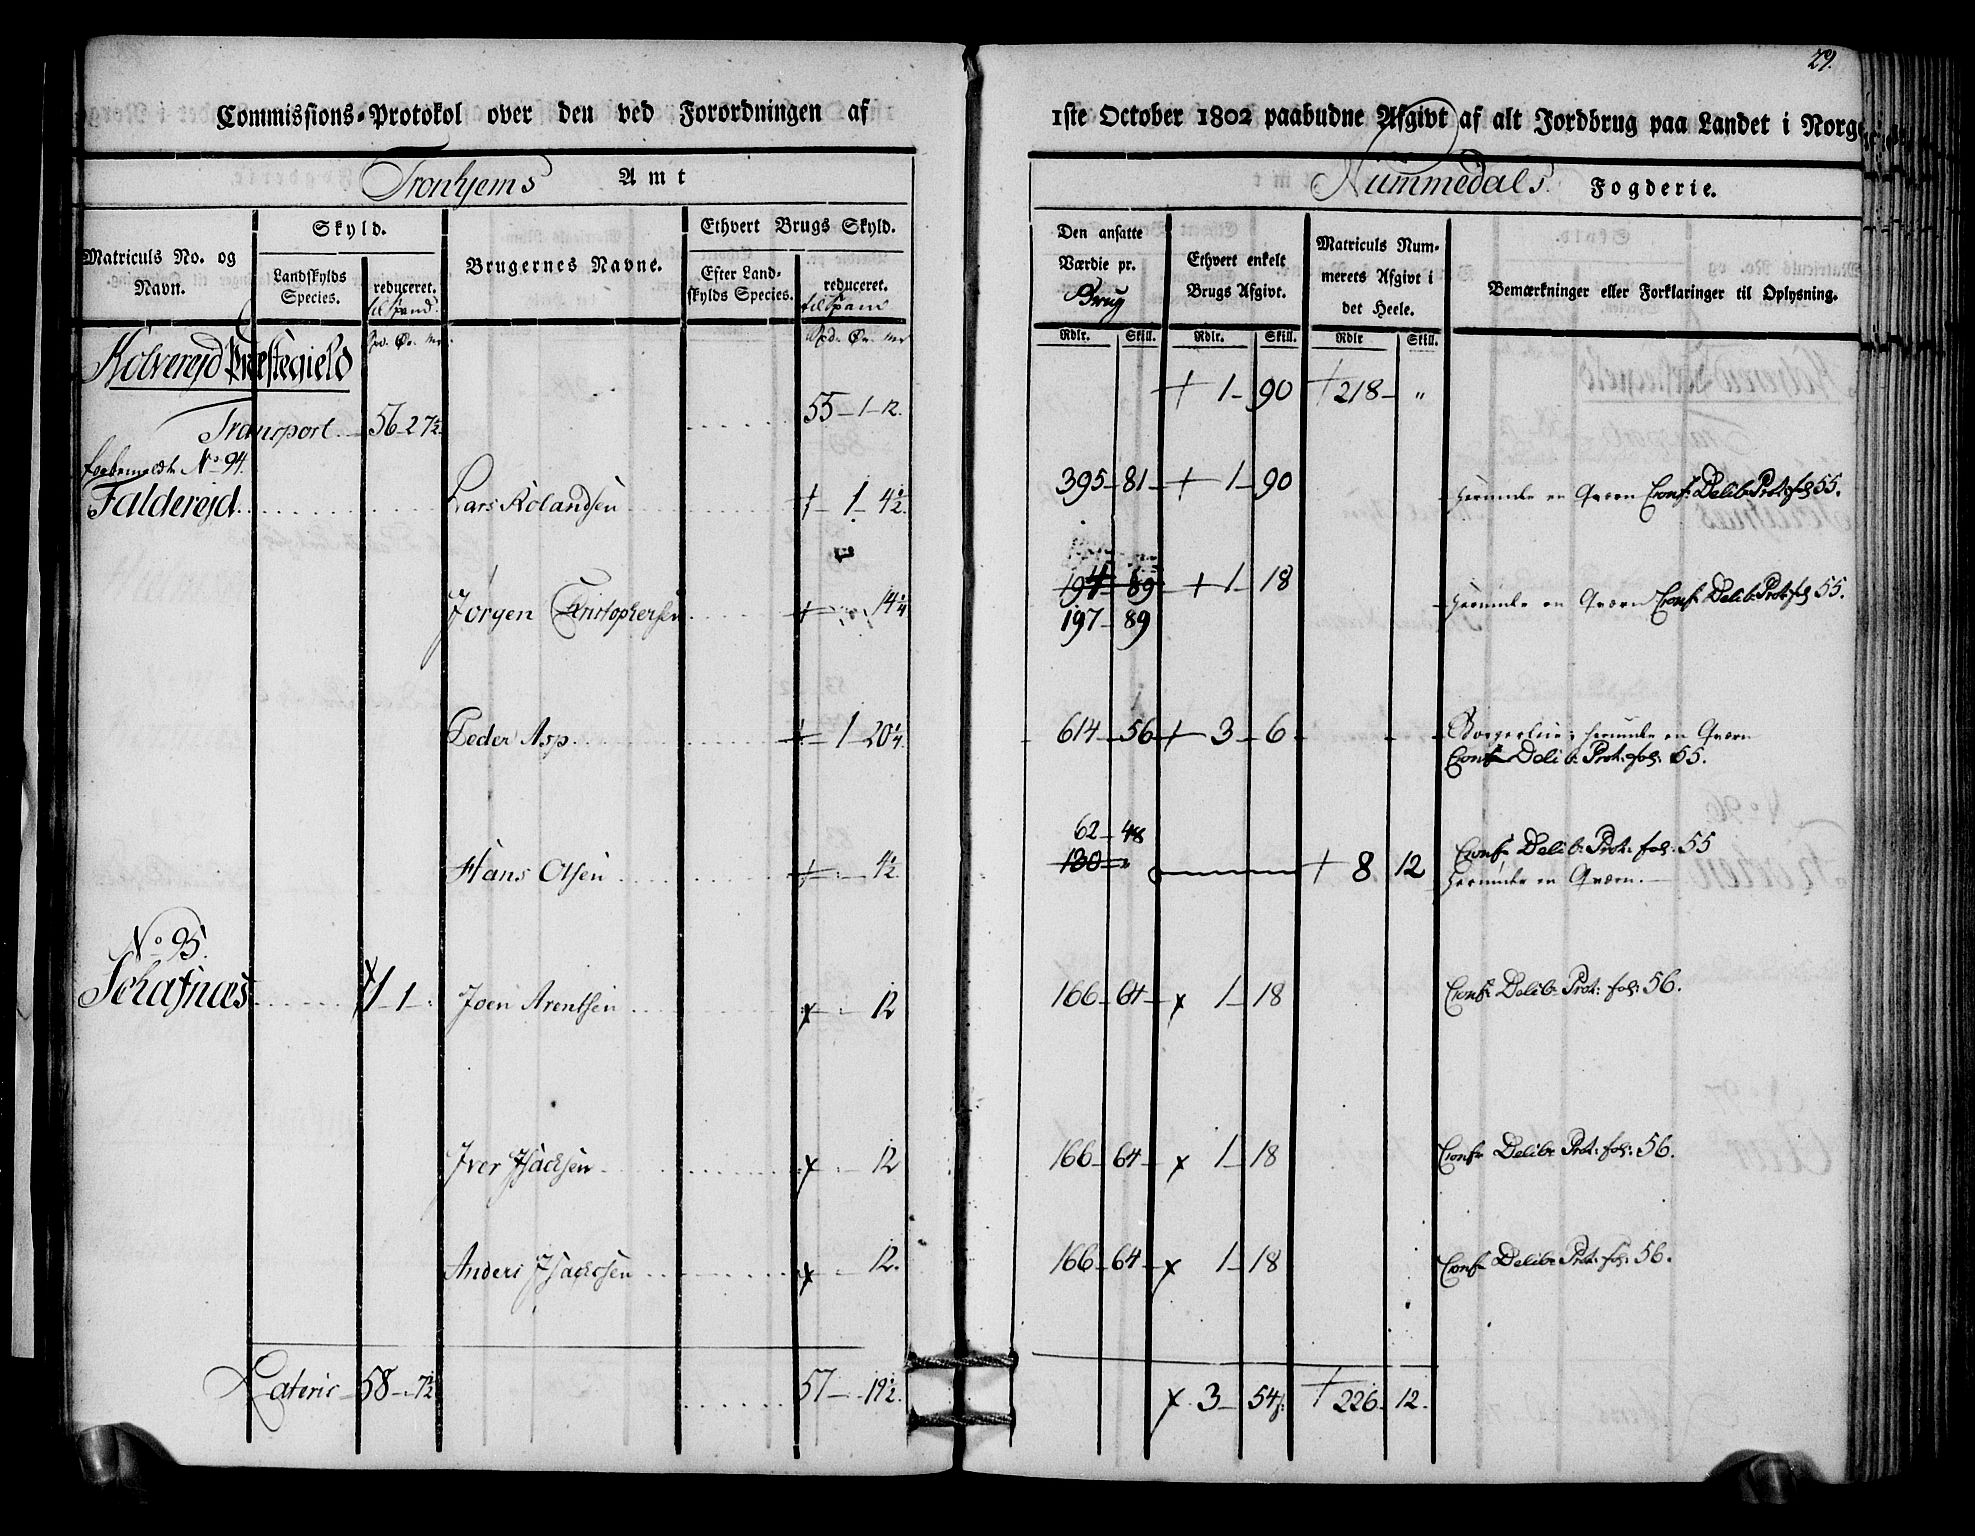 29.
Commissions-Protokol over den ved Forordningen af 1ste October 1802 paabudne Afgivt af alt Jordbrug paa Landet i Norge
Tronhjems Amt Nummedals Fogderie.
Matriculs No. og Navn.
Skyld.
Landskylds Species.
reduceret. til Spand.
Brugernes Navne.
Ethvert Brugs Skyld.
Efter Landskylds Species.
reduceret. til Spand
Den ansatte Værdie pr. Brug
Ethvert enkelt Brugs Afgivt.
Matriculs Nummerets Afgivt i det Heele.
Bemærkninger eller Forklaringer til Oplysning.
Rdlr. Skill. Rdlr. Skill. Rdlr Skill.
Kolverejd Præstegield
Transport 56-27½ 55-1-12. + 1-90 + 218-"
forbemeldte No 94.
Falderejd Lars Rolandsen + 1-4½ 395-81 + 1-90 herunder en Qværn Conf. Delib. Prot. fol 55.
Jörgen Christophersen + 14¼ 197-89 + 1-18 herunder en Qværn Conf. Delib. Prot. fol 55.
197-89
Peder Asp + 1-20¼ 614-56 + 3-6 herunder en Qværn
Conf. Delib. Prot. fol. 55.
62-48
Hans Olsen + 4½ 130-" + 8 12 Conf. Delib. Prot. fol. 55
herunder en Qværn.
No 95.
Schafnæs x 1-1 Joen Arentsen x 12 166-64 x 1-18 Conf. Delib. Prot. fol. 56.
Iver Isachsen x 12 166-64 x 1-18 Conf. Delib. Prot. fol. 56.
Anders Isachsen x 12. 166-64 x 1-18 Conf. Delib. Prot. fol. 56.
Lateris 58-7½ 57-19½ x 3-54 + 226-12.